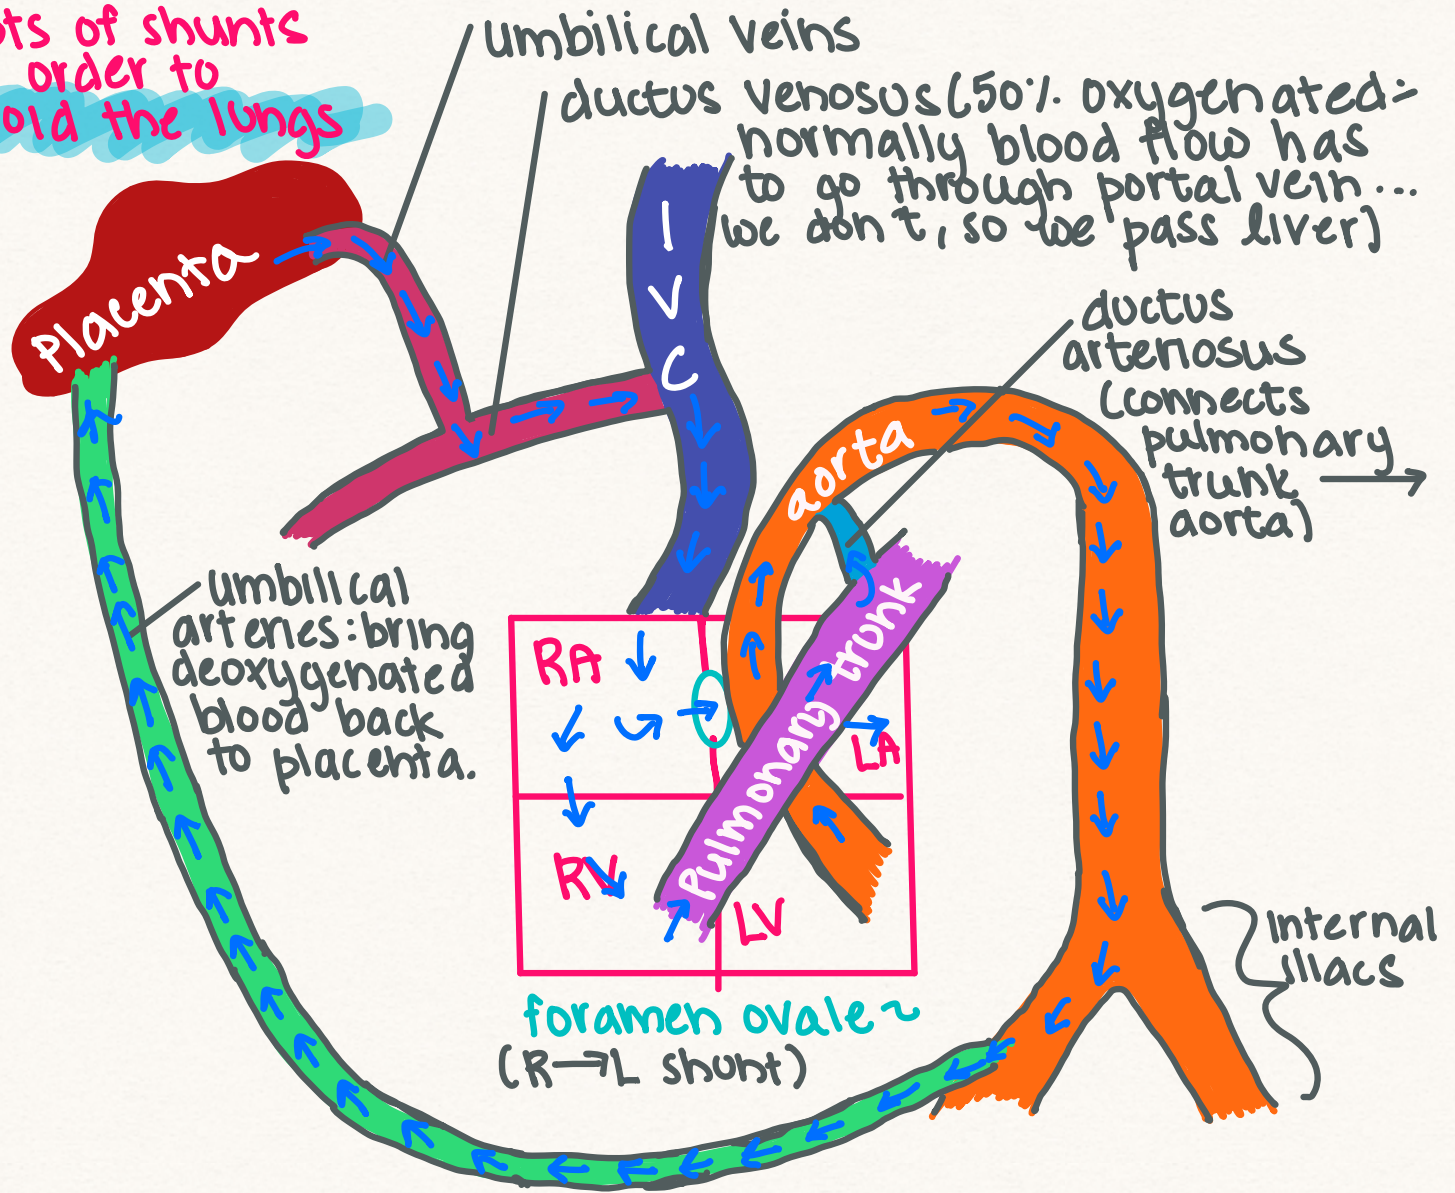 ots of shunts
order to
old the lungs
umbilical veins
ductus venosus (50% oxygenated~
normally blood flow has
to go through portal vein...
we don't, so we pass liver)
Placenta
IVC
ductus
arteriosus
(connects
pulmonary
trunk →
aorta)
aorta
umbilical
arteries: bring
deoxygenated
blood back
to placenta.
RA
Pulmonary trunk
LA
RV
LV
Internal
illacs
foramen ovale ~
(R→L shunt)